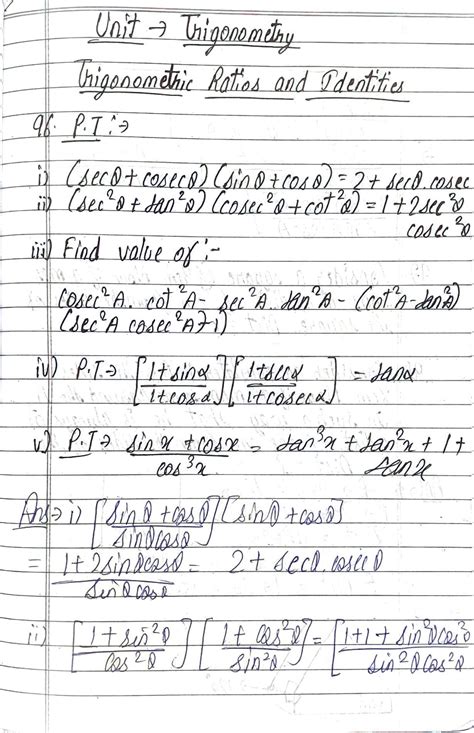 Unit → Trigonometry
Trigonometric Ratios and Identities
96. P.T :→
i) (secθ + cosecθ) (sinθ + cosθ) = 2 + secθ. cosec
ii) (sec²θ + tan²θ) (cosec²θ + cot²θ) = 1 + 2sec²θ
cosec²θ
iii) Find value of :-
cosec²A. cot²A - sec²A tan²A - (cot²A - tan²A)
(sec²A cosec²A + 1)
iv) P.T.→ [1+sinα / 1+cosα] [1+secα / 1+cosecα] = tanα
v) P.T→ sinx + cosx / cos³x = tan³x + tan²x + 1 +
tanx
Ans→ i) [sinθ + cosθ / sinθcosθ] [sinθ + cosθ]
= 1 + 2sinθcosθ / sinθcosθ = 2 + secθ. cosecθ
ii) [1 + sin²θ / cos²θ] [1 + cos²θ / sin²θ] = [1+1+ sin²θcos²θ / sin²θcos²θ